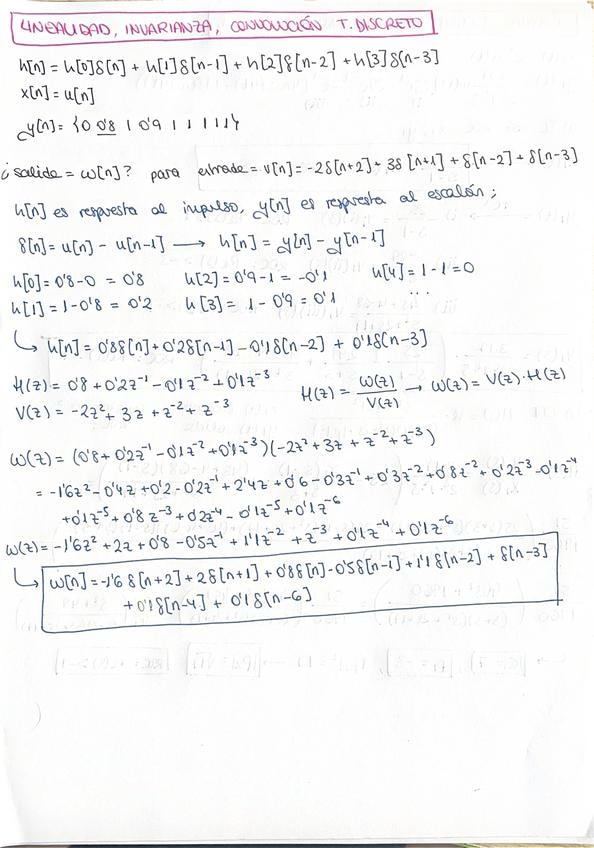 LINEALIDAD, INVARIANZA, CONVOLUCIÓN T. DISCRETO
h[n] = h[0]δ[n] + h[1]δ[n-1] + h[2]δ[n-2] + h[3]δ[n-3]
x[n] = u[n]
y[n] = {0 0'8 1 0'9 1 1 1 1 1}
¿salida = w[n]? para entrada = v[n] = -2δ[n+2] + 3δ[n+1] + δ[n-2] + δ[n-3]
h[n] es respuesta al impulso, y[n] es respuesta al escalón;
δ[n] = u[n] - u[n-1] → h[n] = y[n] - y[n-1]
h[0] = 0'8 - 0 = 0'8 h[2] = 0'9 - 1 = -0'1 h[4] = 1 - 1 = 0
h[1] = 1 - 0'8 = 0'2 h[3] = 1 - 0'9 = 0'1 ...
↳ h[n] = 0'8δ[n] + 0'2δ[n-1] - 0'1δ[n-2] + 0'1δ[n-3]
H(z) = 0'8 + 0'2z⁻¹ - 0'1z⁻² + 0'1z⁻³ H(z) = W(z)/V(z) → W(z) = V(z)·H(z)
V(z) = -2z² + 3z + z⁻² + z⁻³
W(z) = (0'8 + 0'2z⁻¹ - 0'1z⁻² + 0'1z⁻³)(-2z² + 3z + z⁻² + z⁻³)
= -1'6z² - 0'4z + 0'2 - 0'2z⁻¹ + 2'4z + 0'6 - 0'3z⁻¹ + 0'3z⁻² + 0'8z⁻² + 0'2z⁻³ - 0'1z⁻⁴
+ 0'1z⁻⁵ + 0'8z⁻³ + 0'2z⁻⁴ - 0'1z⁻⁵ + 0'1z⁻⁶
W(z) = -1'6z² + 2z + 0'8 - 0'5z⁻¹ + 1'1z⁻² + z⁻³ + 0'1z⁻⁴ + 0'1z⁻⁶
↳ w[n] = -1'6δ[n+2] + 2δ[n+1] + 0'8δ[n] - 0'5δ[n-1] + 1'1δ[n-2] + δ[n-3]
+ 0'1δ[n-4] + 0'1δ[n-6]